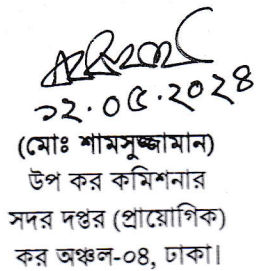 ১২.০৫.২০২৪
(মোঃ শামসুজ্জামান)
উপ কর কমিশনার
সদর দপ্তর (প্রায়োগিক)
কর অঞ্চল-০৪, ঢাকা।